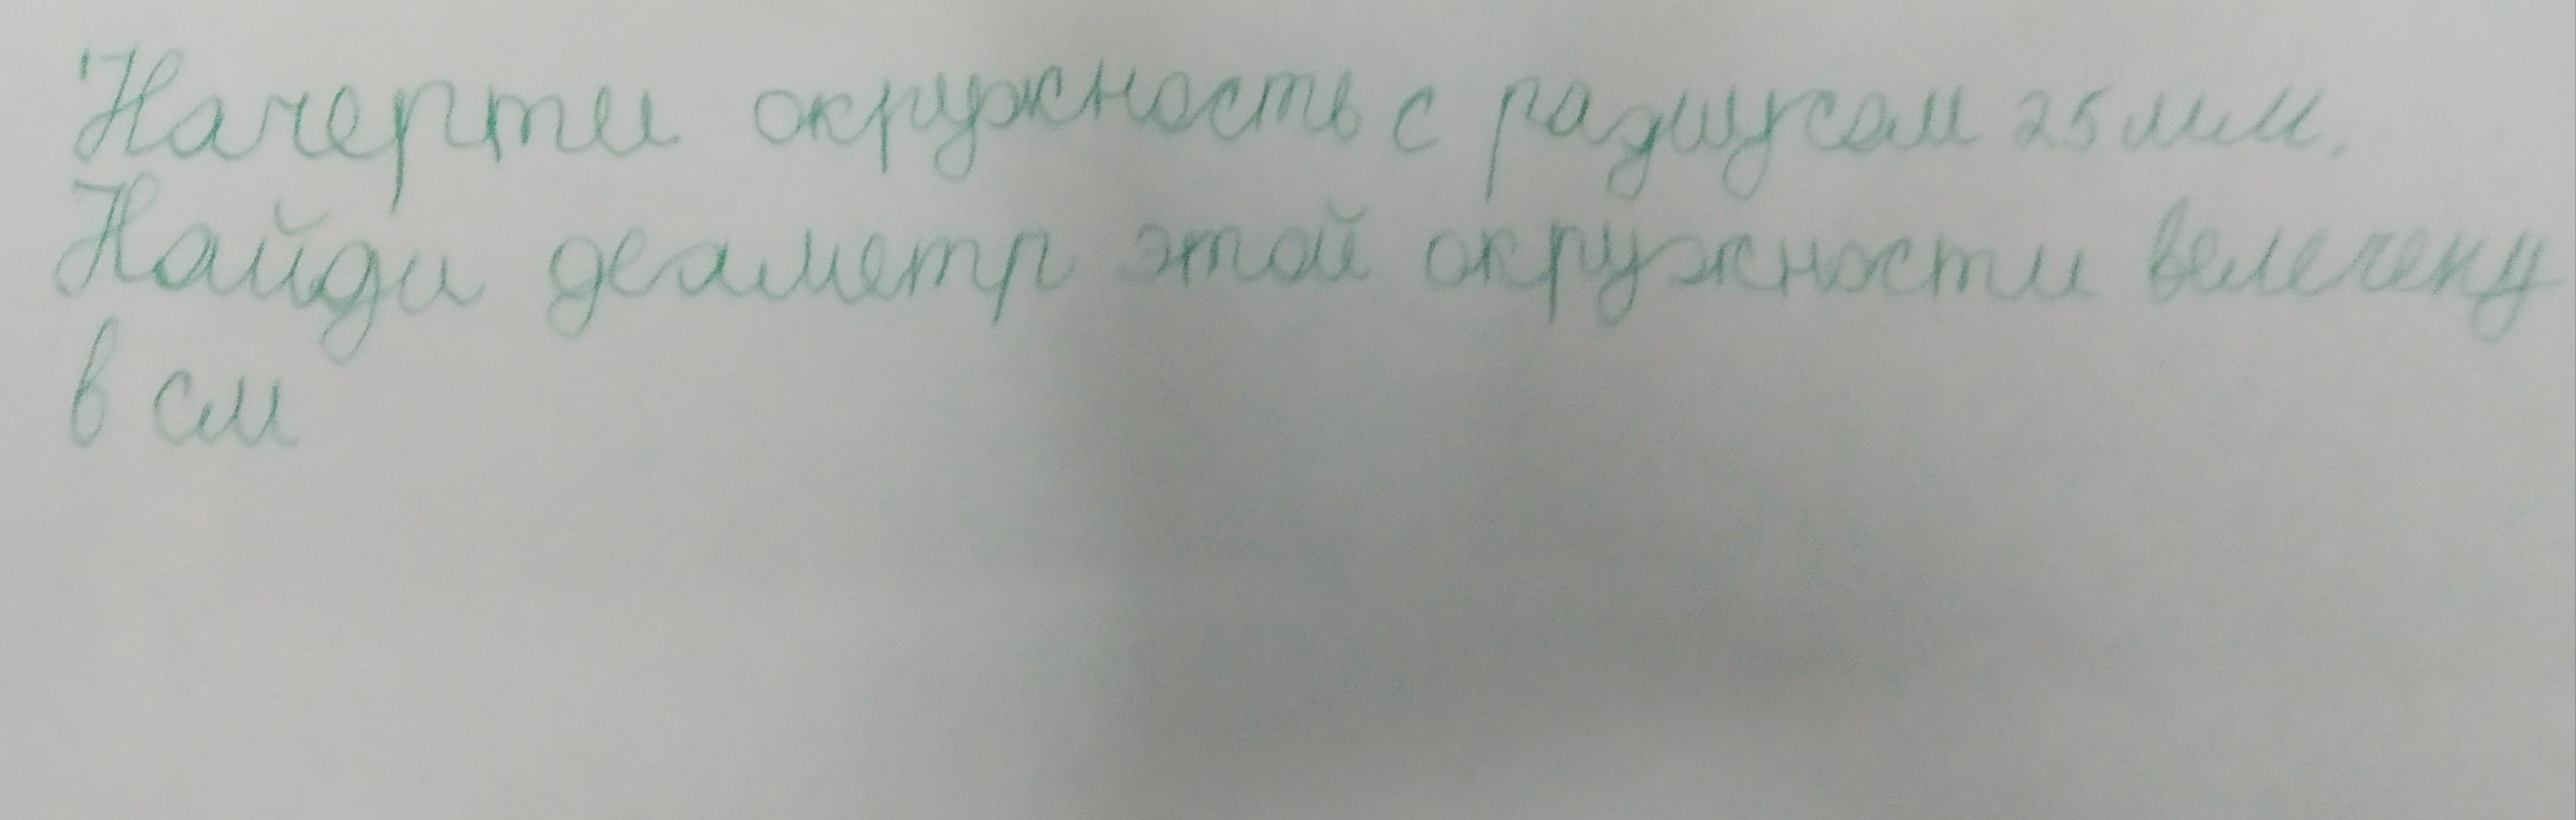 Начерти окружность с радиусом 25 мм.
Найди деаметр этой окружности велечену
в см